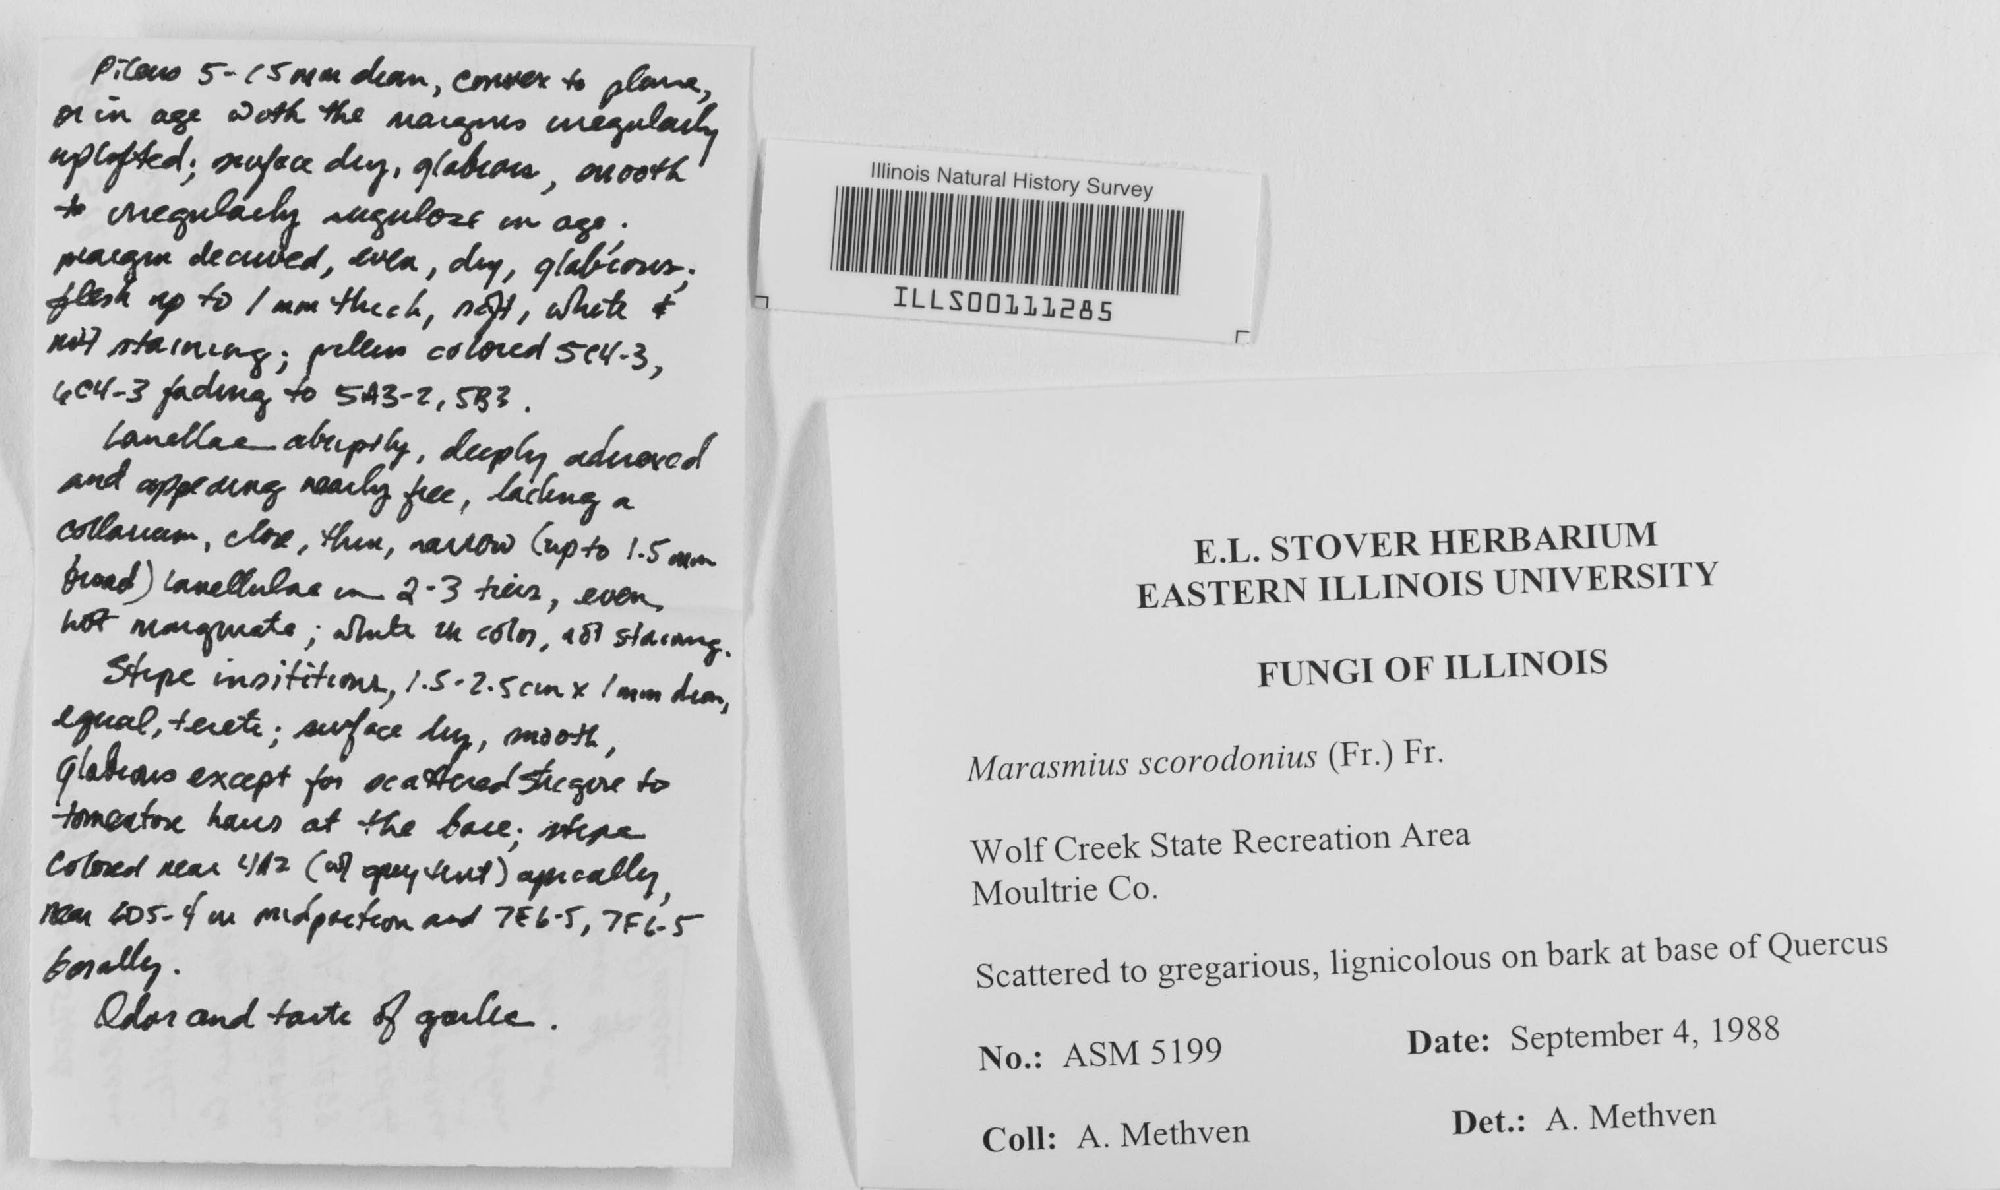 Pileus 5-15 mm diam, convex to plane,
or in age with the margins irregularly
uplifted; surface dry, glabrous, smooth
to irregularly rugulose in age;
margin decurved, even, dry, glabrous;
flesh up to 1 mm thick, soft, white &
not staining; pileus colored 5C4-3,
6C4-3 fading to 5A3-2, 5B3.
Lamellae abruptly, deeply adnexed
and appearing nearly free, lacking a
collarium, close, thin, narrow (up to 1.5 mm
broad) lamellulae in 2-3 tiers, even,
not marginate; white in color, not staining.
Stipe insititious, 1.5-2.5 cm x 1 mm diam,
equal, terete; surface dry, smooth,
glabrous except for scattered strigose to
tomentose hairs at the base; stipe
colored near 4A2 (w/ grey tint) apically,
near 6D5-4 in midportion and 7E6-5, 7F6-5
basally.
Odor and taste of garlic.
Illinois Natural History Survey
ILLS00111285
E.L. STOVER HERBARIUM
EASTERN ILLINOIS UNIVERSITY
FUNGI OF ILLINOIS
Marasmius scorodonius (Fr.) Fr.
Wolf Creek State Recreation Area
Moultrie Co.
Scattered to gregarious, lignicolous on bark at base of Quercus
No.: ASM 5199 Date: September 4, 1988
Coll: A. Methven Det.: A. Methven